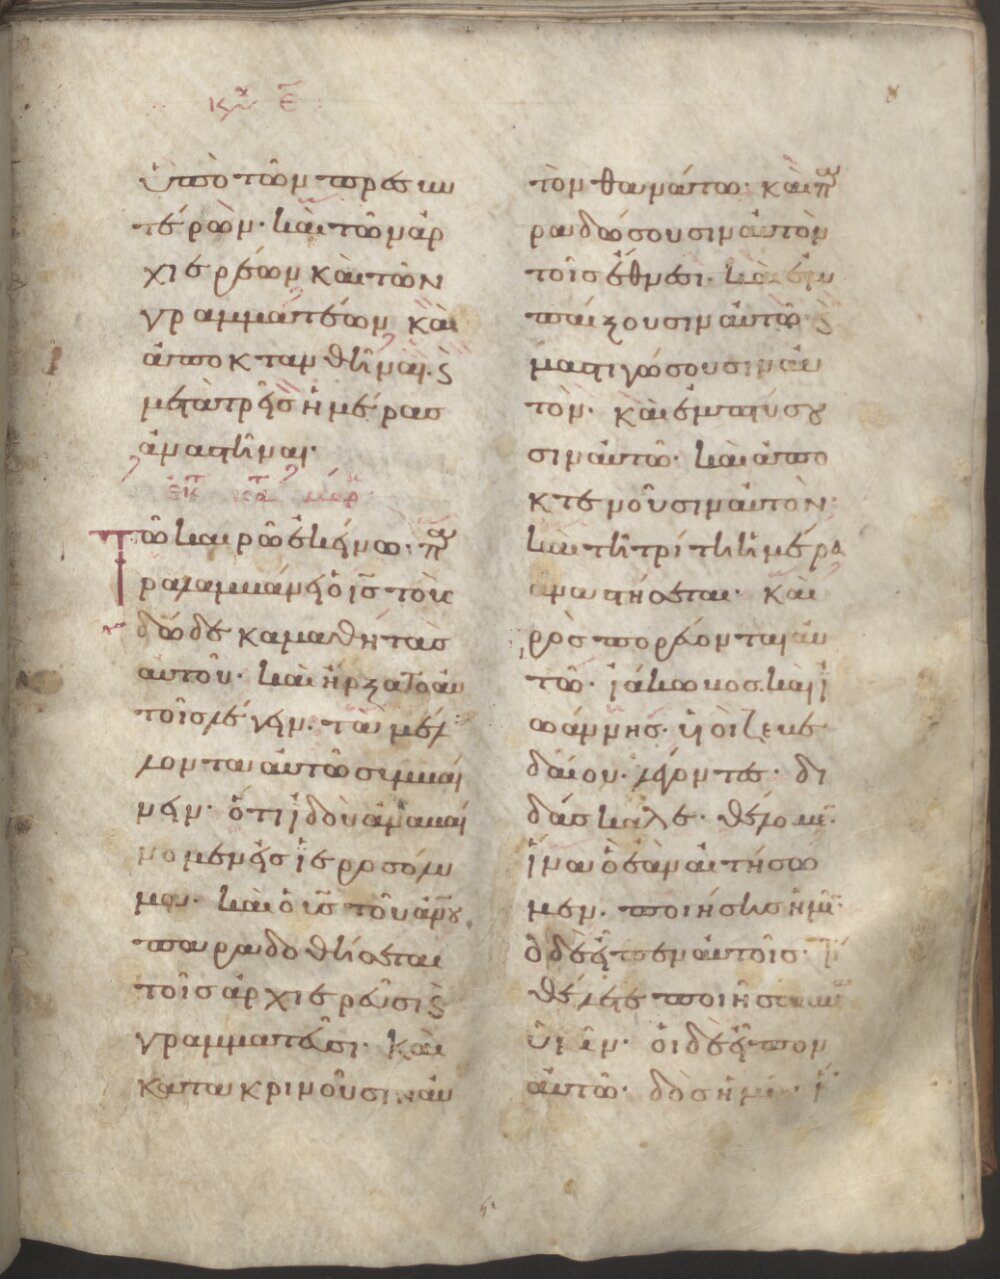 κυ ε
ὑπὸ τῶν πρεσβυ
τέρων· καὶ τῶν ἀρ
χιερέων καὶ τῶν
γραμματέων καὶ
ἀποκτανθῆναι. ϛ
μετὰ τρεῖς ἡμέρας
ἀναστῆναι·
ἐκ τ κατ μαρ
Τῶ καιρῶ ἐκείνω· πα
ραλαμβάνει ὁ ις τοὺς
δώδεκα μαθητὰς
αυτοῦ· καὶ ἤρξατο αυ
τοῖς λέγειν. τὰ μελ
λοντα αυτῶ συμβαί
νειν· ὅτι ἰδοὺ ἀναβαί
νομεν εἰς ἱεροσόλυ
μα· καὶ ὁ υς τοῦ ανου
παραδοθήσεται
τοῖς ἀρχιερεῦσι ϛ
γραμματεῦσι· καὶ
κατακρινοῦσιν αὐ
τὸν θανάτω· καὶ πα
ραδώσουσιν αὐτὸν
τοῖς ἔθνεσι· καὶ ἐμ
παίξουσιν αὐτῶ· ϛ
μαστιγώσουσιν αὐ
τὸν· καὶ ἐμπτύσου
σιν αὐτῶ· καὶ ἀπο
κτενοῦσιν αὐτὸν·
καὶ τῆ τρίτη ἡμέρα
αναστήσεται· καὶ
ρος πορεύονται αὐ
τῶ· ἰάκωβος καὶ ἰ
ωάννης· υἱοὶ ζεβε
δαίου· λέγοντες· δι
δάσκαλε· θέλομεν·
ἵνα ὃ ἐὰν αἰτήσω
μεν· ποιήσης ἡμῖν·
ὁ δὲ εἶπεν αὐτοῖς· Τί
θέλετε ποιῆσαι με
ὑμῖν· οἱ δὲ εἶπον
αὐτῶ· δὸς ἡμῖν· ἵ